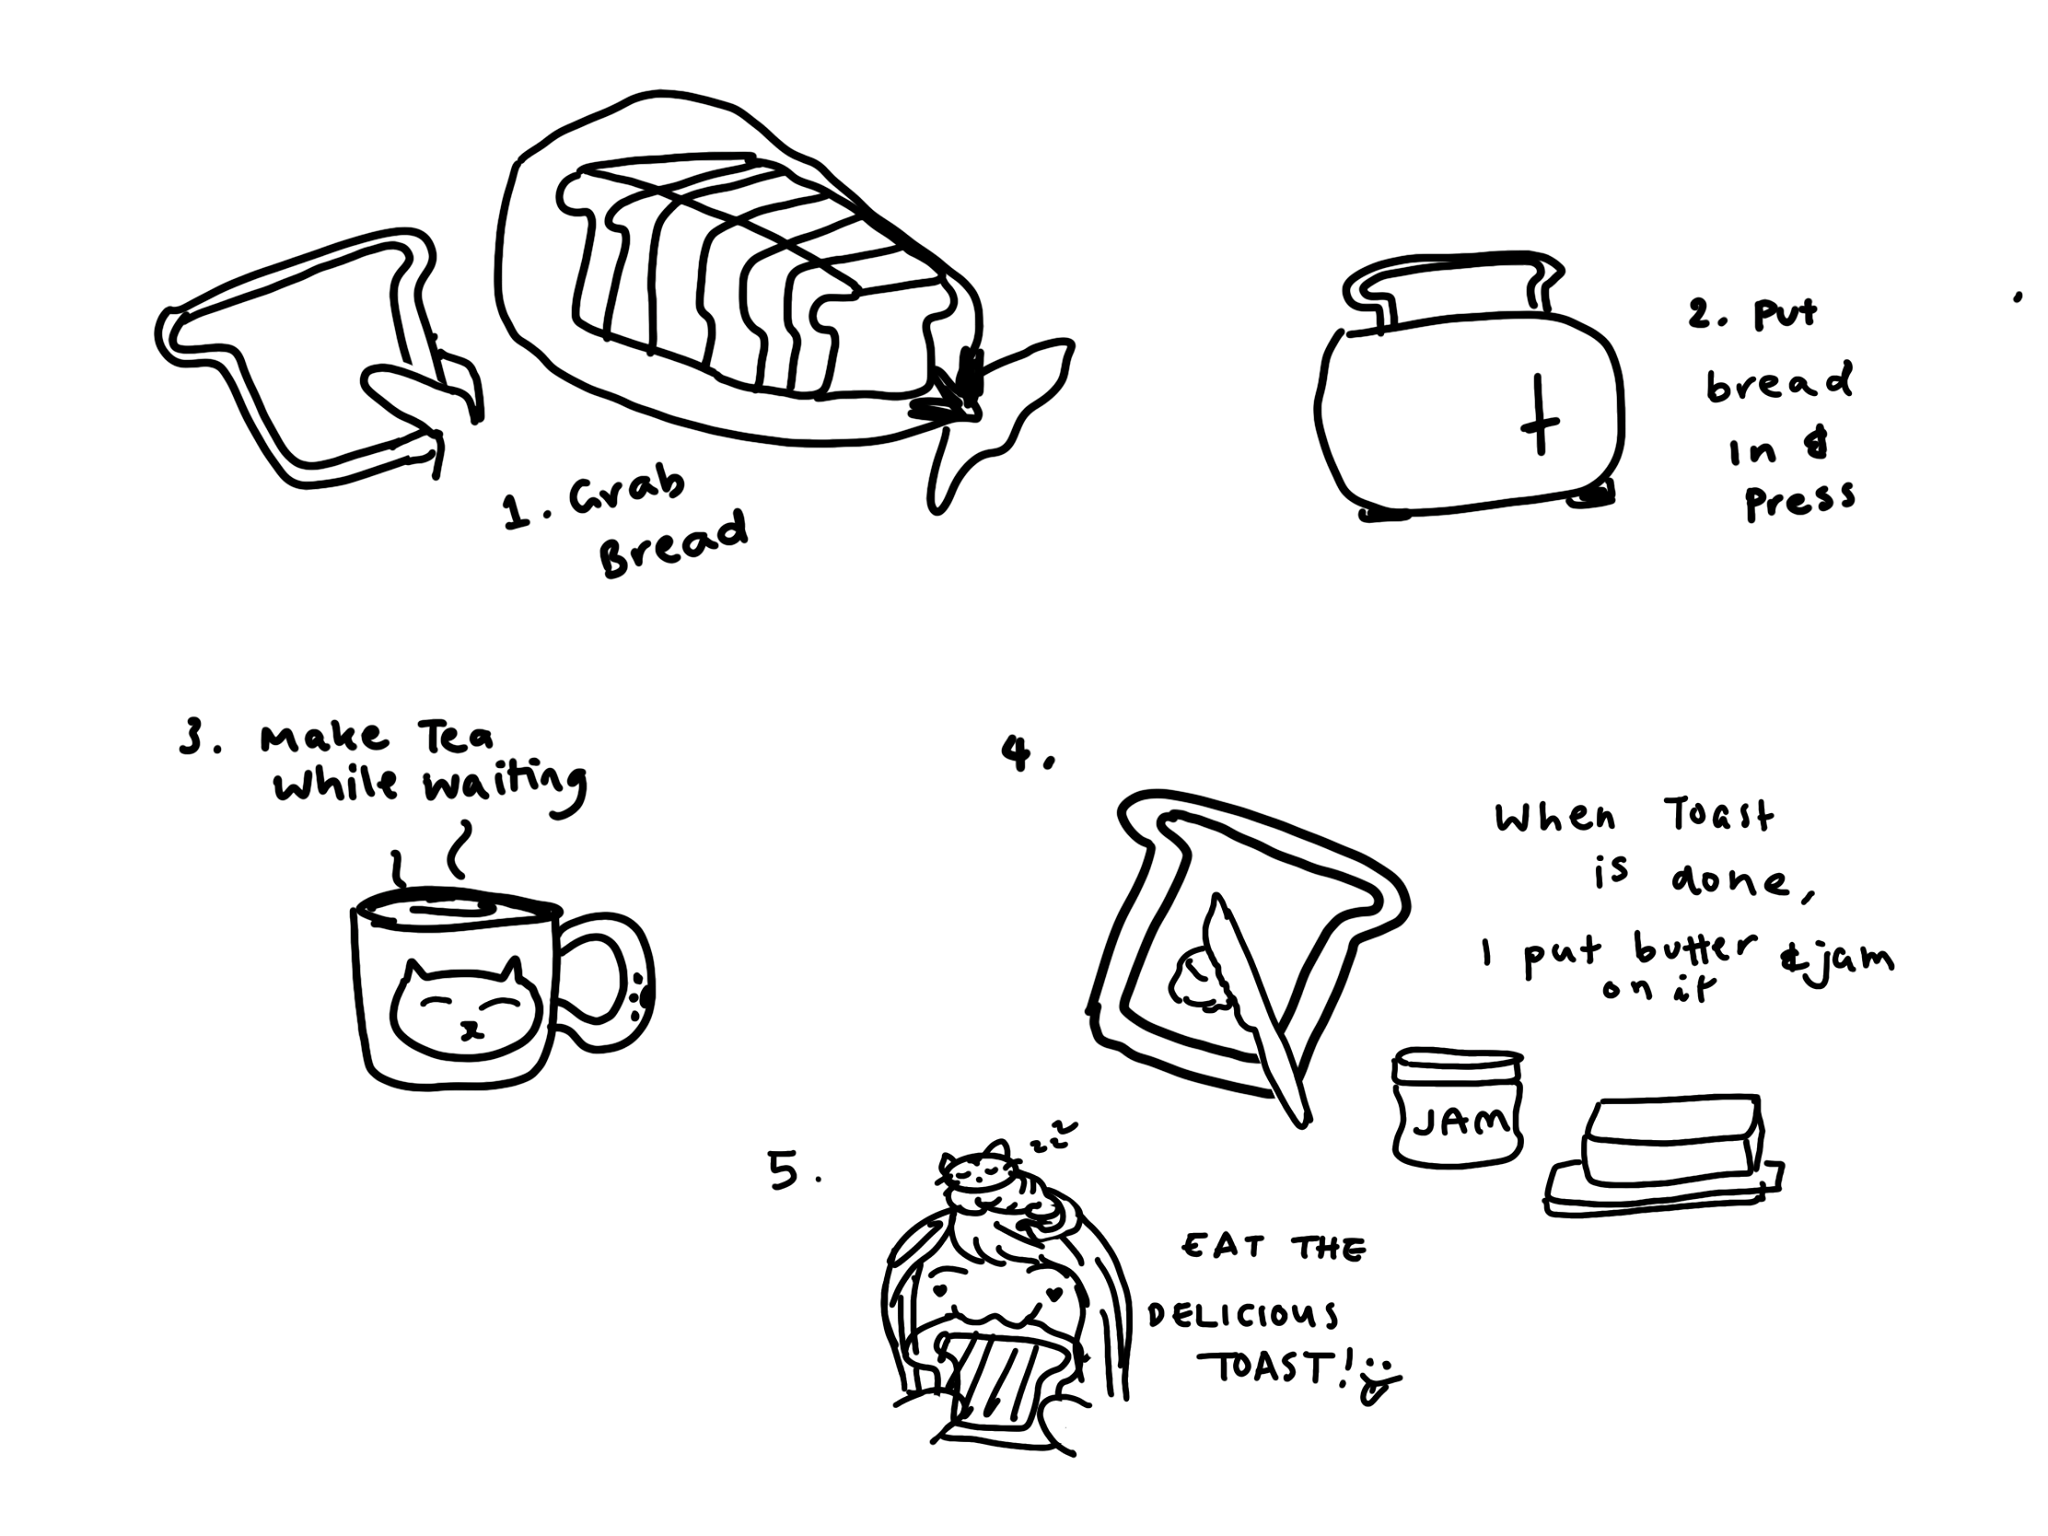 1. Grab
Bread
2. Put
bread
in &
Press
3. Make Tea
while waiting
4.
When Toast
is done,
I put butter & jam
on it
JAM
5.
zzz
EAT THE
DELICIOUS
TOAST!